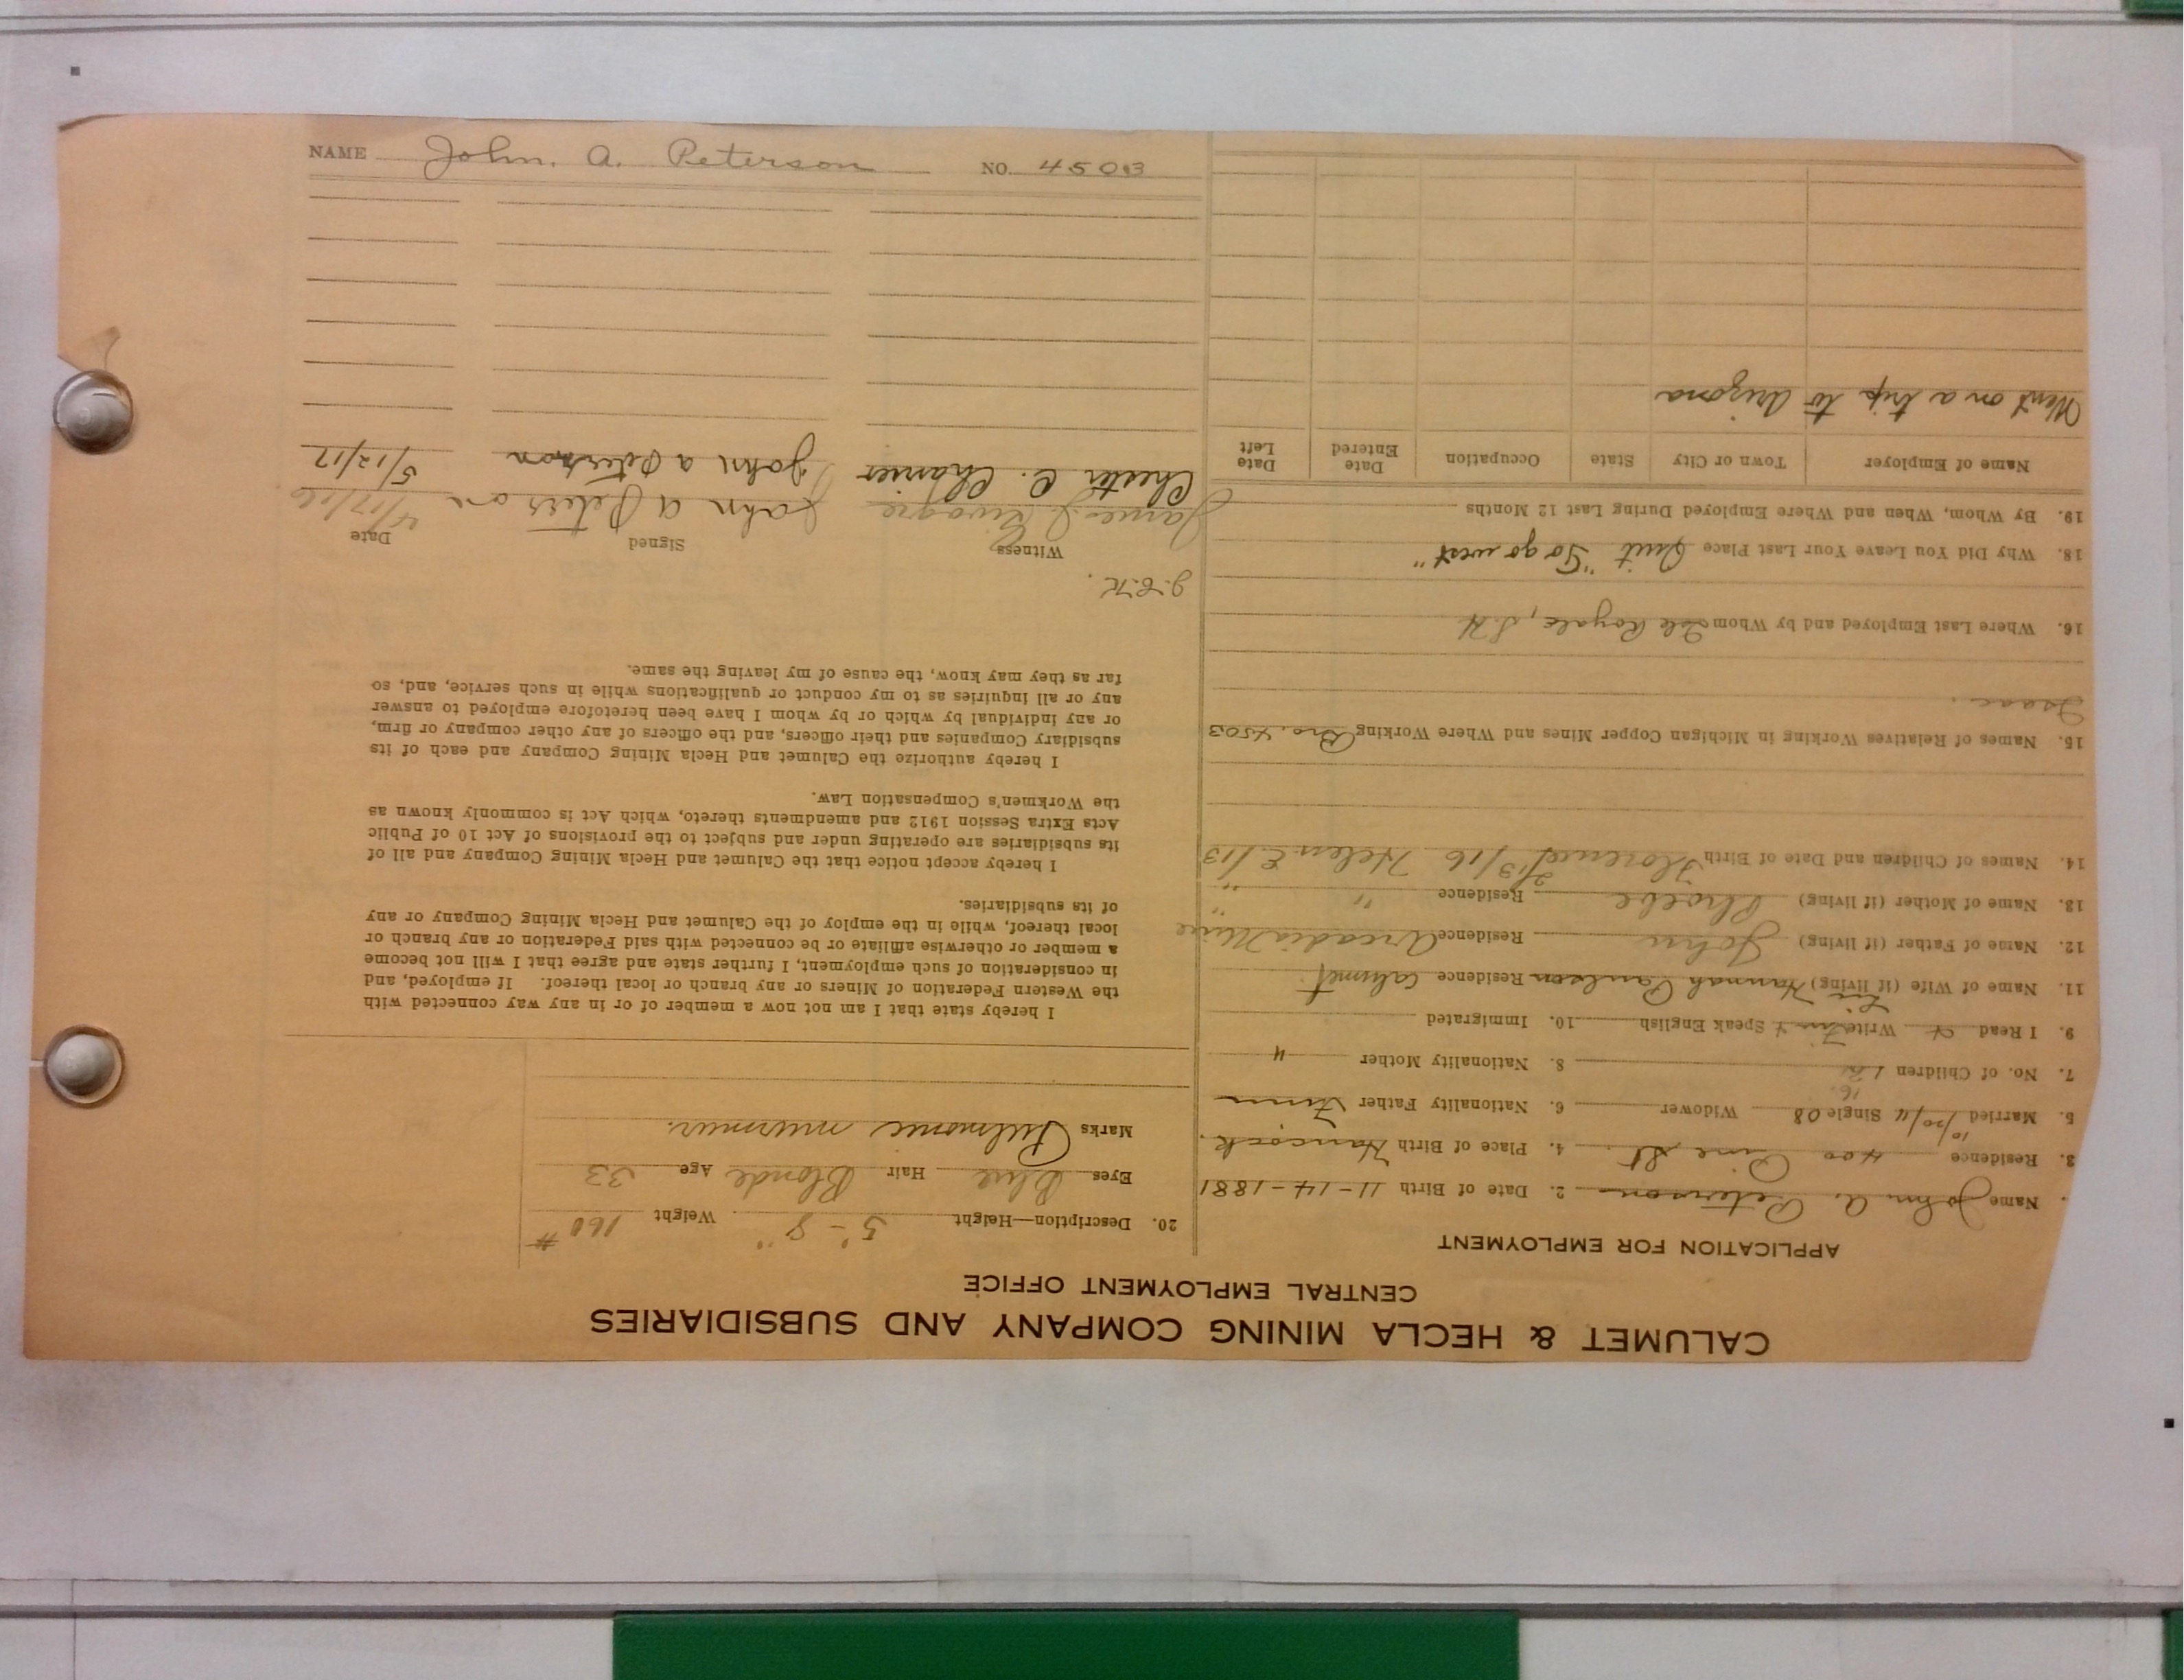 CALUMET & HECLA MINING COMPANY AND SUBSIDIARIES
CENTRAL EMPLOYMENT OFFICE
APPLICATION FOR EMPLOYMENT
Name John A. Peterson 2. Date of Birth 11-14-1881
3. Residence 400 Pine St. 4. Place of Birth Hancock.
5. Married 10/20/14 Single 08 Widower 6. Nationality Father Finn
16.
7. No. of Children 8. Nationality Mother "
9. I Read & Write Finn & Speak English 10. Immigrated
11. Name of Wife (if living) Hannah Paulson Residence Calumet.
12. Name of Father (if living) John Residence Arcadia Mine
13. Name of Mother (if living) Phoebe Residence " "
14. Names of Children and Date of Birth Florence 2/13/16 Helen E/13
15. Names of Relatives Working in Michigan Copper Mines and Where Working Bro. 4503
Isaac.
16. Where Last Employed and by Whom Isle Royale, S.H
18. Why Did You Leave Your Last Place Quit "To go west"
19. By Whom, When and Where Employed During Last 12 Months
Name of Employer Town or City State Occupation Date Entered Date Left
Went on a trip to Arizona
20. Description—Height 5'-8" Weight 160 #
Eyes Blue Hair Blonde Age 33
Marks Pulmonic murmur.
I hereby state that I am not now a member of or in any way connected with
the Western Federation of Miners or any branch or local thereof. If employed, and
in consideration of such employment, I further state and agree that I will not become
a member or otherwise affiliate or be connected with said Federation or any branch or
local thereof, while in the employ of the Calumet and Hecla Mining Company or any
of its subsidiaries.
I hereby accept notice that the Calumet and Hecla Mining Company and all of
its subsidiaries are operating under and subject to the provisions of Act 10 of Public
Acts Extra Session 1912 and amendments thereto, which Act is commonly known as
the Workmen's Compensation Law.
I hereby authorize the Calumet and Hecla Mining Company and each of its
subsidiary Companies and their officers, and the officers of any other company or firm,
or any individual by which or by whom I have been heretofore employed to answer
any or all inquiries as to my conduct or qualifications while in such service, and, so
far as they may know, the cause of my leaving the same.
J.E.K.
Witness Signed Date
James John A Peterson 4/17/16
Chester C. John A Peterson 5/12/17
NAME John. A. Peterson NO. 4503